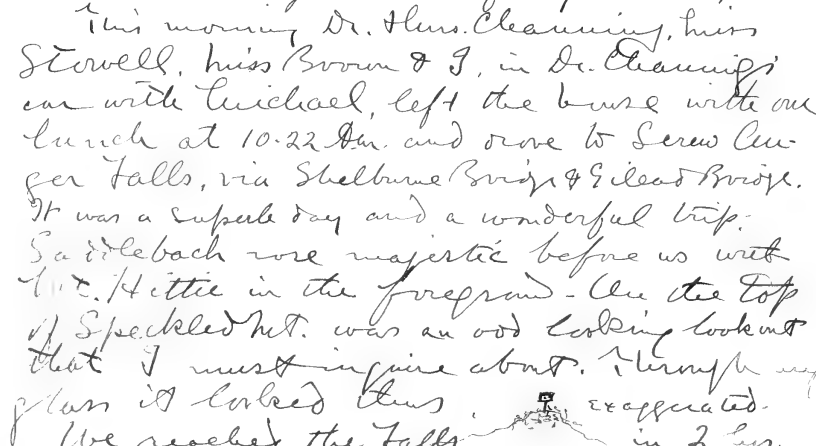 This morning Dr. & Mrs. Channing, Miss
Stowell, Miss Brown & I, in Dr. Channing's
car with Michael, left the house with our
lunch at 10-22 Am. and drove to Screw Au-
ger Falls, via Shelburne Bridge & Gilead Bridge.
It was a superb day and a wonderful trip.
Saddleback rose majestic before us with
Mt. Hittie in the foreground - On the top
of Speckled Mt. was an odd looking lookout
that I must inquire about. Through my
glass it looked thus exaggerated.
We reached the Falls in 2 hrs.